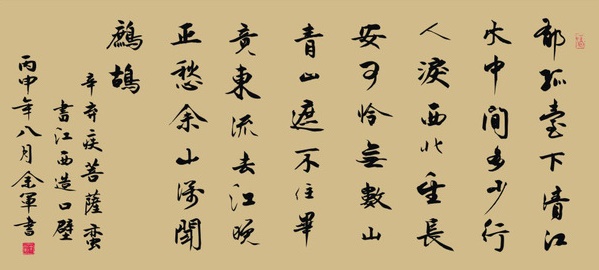 郁孤臺下清江
水中間多少行
人淚西北望長
安可怜無數山
青山遮不住畢
竟東流去江晚
正愁余山深聞
鷓鴣
辛弃疾菩薩蠻
書江西造口壁
丙申年八月余軍書